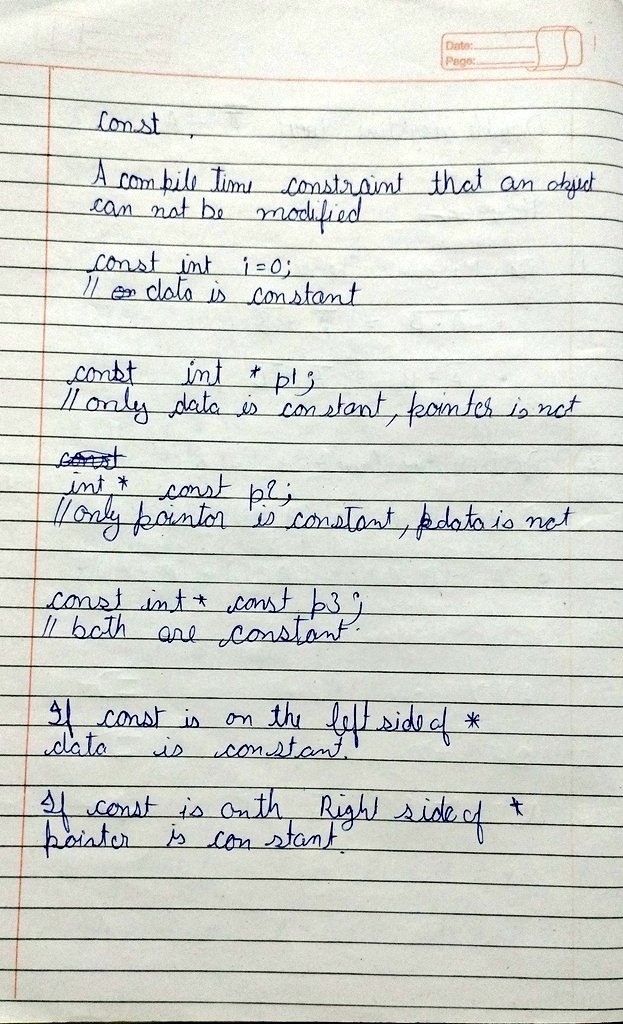 Date:
Page:
Const .
A compile time constraint that an object
can not be modified
const int i=0;
// data is constant
const int * p1;
// only data is constant, pointer is not
const
int * const p2;
// only pointor is constant, data is not
const int * const p3;
// both are constant.
If const is on the left side of *
data is constant.
If const is on th Right side of *
pointer is con stant.